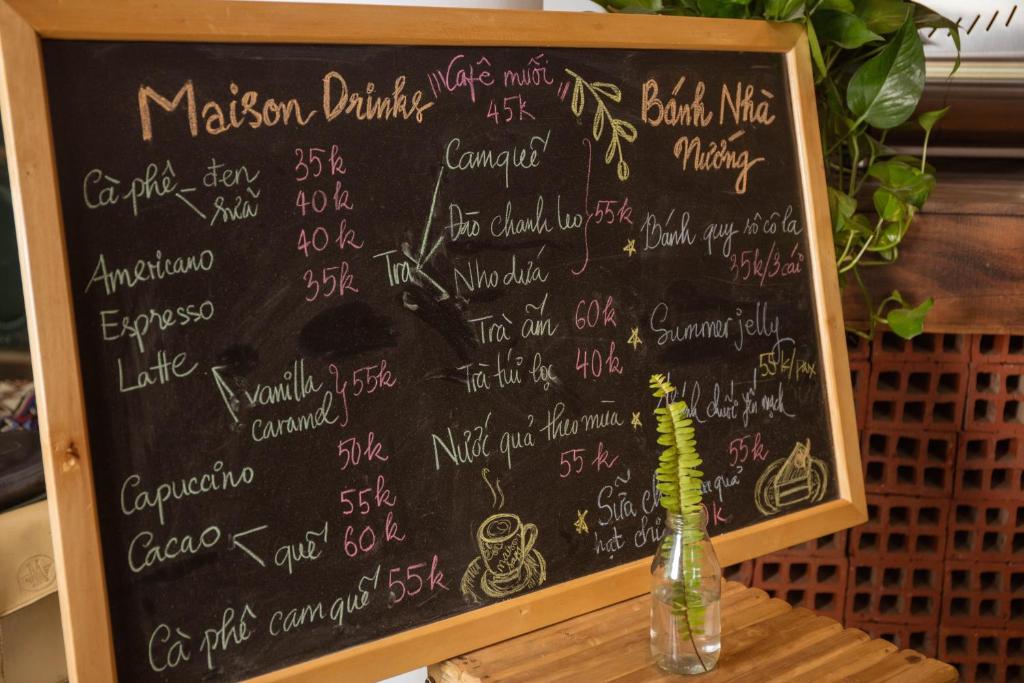 Maison Drinks
"Cafê muối"
45k
Cà phê đen 35k
sữa 40k
Americano 40k
Espresso 35k
Latte
vanilla
caramel 55k
Capuccino 50k
Cacao 55k
quế 60k
Cà phê cam quế 55k
Trà
Cam quế
Đào chanh leo 55k
Nho dứa
Trà ấm 60k
Trà túi lọc 40k
Nước quả theo mùa
55k
maison
Bánh Nhà
Nướng
Bánh quy sôcôla
35k/3cái
Summer jelly
55k/pax
chuối yến mạch
55k
Sữa quả
hạt